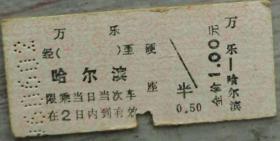 万乐
经( )至硬
哈尔滨 座
限乘当日当次车
在2日内到有效
半
0.50
全价1.00元
万乐—哈尔滨